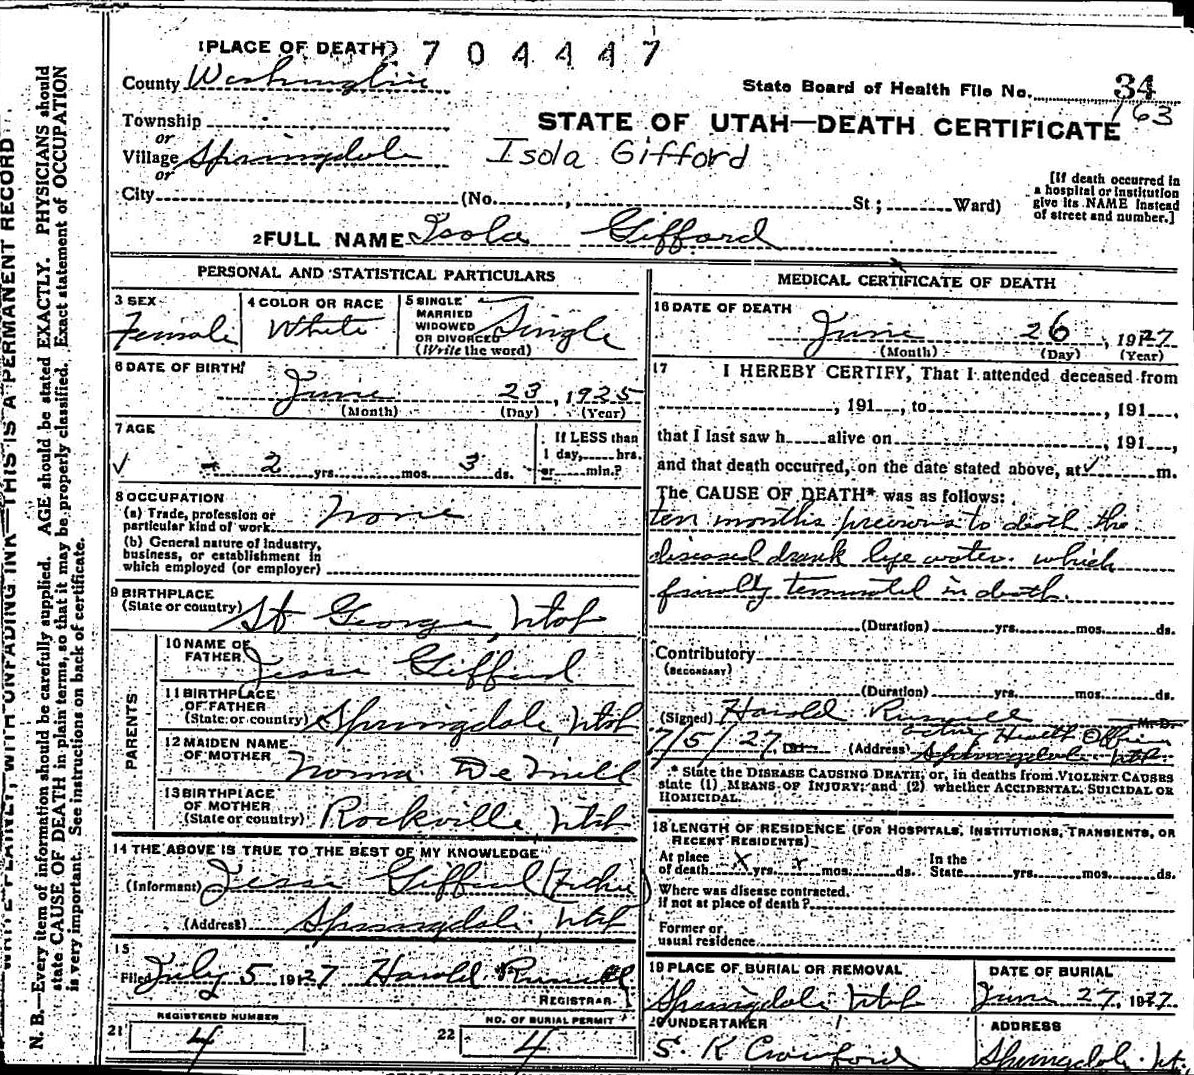 WRITE PLAINLY, WITH UNFADING INK—THIS IS A PERMANENT RECORD
N. B.—Every item of information should be carefully supplied. AGE should be stated EXACTLY. PHYSICIANS should
state CAUSE OF DEATH in plain terms, so that it may be properly classified. Exact statement of OCCUPATION
is very important. See instructions on back of certificate.
1 PLACE OF DEATH 2704447
County Washington
State Board of Health File No. 34
163
Township
or
Village Springdale
or
City (No. , St.; Ward)
STATE OF UTAH—DEATH CERTIFICATE
Isola Gifford
[If death occurred in
a hospital or institution
give its NAME instead
of street and number.]
2 FULL NAME Isola Gifford
PERSONAL AND STATISTICAL PARTICULARS
3 SEX Female
4 COLOR OR RACE White
5 SINGLE
MARRIED
WIDOWED
OR DIVORCED
(Write the word) Single
6 DATE OF BIRTH
June 23, 1925
(Month) (Day) (Year)
7 AGE
2 yrs. mos. 3 ds.
If LESS than
1 day, hrs.
or min.?
8 OCCUPATION
(a) Trade, profession or
particular kind of work None
(b) General nature of industry,
business, or establishment in
which employed (or employer)
9 BIRTHPLACE
(State or country) St George, Utah
PARENTS
10 NAME OF
FATHER Jesse Gifford
11 BIRTHPLACE
OF FATHER
(State or country) Springdale, Utah
12 MAIDEN NAME
OF MOTHER Norma DeMill
13 BIRTHPLACE
OF MOTHER
(State or country) Rockville, Utah
14 THE ABOVE IS TRUE TO THE BEST OF MY KNOWLEDGE
(Informant) Jesse Gifford
(Address) Springdale, Utah
15
Filed July 5 1927 Harold Russell
REGISTRAR
21 REGISTERED NUMBER
4
22 NO. OF BURIAL PERMIT
4
MEDICAL CERTIFICATE OF DEATH
16 DATE OF DEATH
June 26, 1927
(Month) (Day) (Year)
17 I HEREBY CERTIFY, That I attended deceased from
, 191 , to , 191 ,
that I last saw h alive on , 191 ,
and that death occurred, on the date stated above, at m.
The CAUSE OF DEATH* was as follows:
ten months previous to death the
diseased drank lye water which
finally terminated in death.
(Duration) yrs. mos. ds.
Contributory
(SECONDARY)
(Duration) yrs. mos. ds.
(Signed) Harold Russell M. D.
acting Health Officer
7/5/27, 191 (Address) Springdale Utah
* State the DISEASE CAUSING DEATH, or, in deaths from VIOLENT CAUSES
state (1) MEANS OF INJURY; and (2) whether ACCIDENTAL, SUICIDAL OR
HOMICIDAL.
18 LENGTH OF RESIDENCE (FOR HOSPITALS, INSTITUTIONS, TRANSIENTS, OR
RECENT RESIDENTS)
At place
of death x yrs. x mos. ds.
In the
State yrs. mos. ds.
Where was disease contracted.
If not at place of death?
Former or
usual residence
19 PLACE OF BURIAL OR REMOVAL
Springdale Utah
DATE OF BURIAL
June 27, 1927
20 UNDERTAKER
S. K Crawford
ADDRESS
Springdale. Ut.